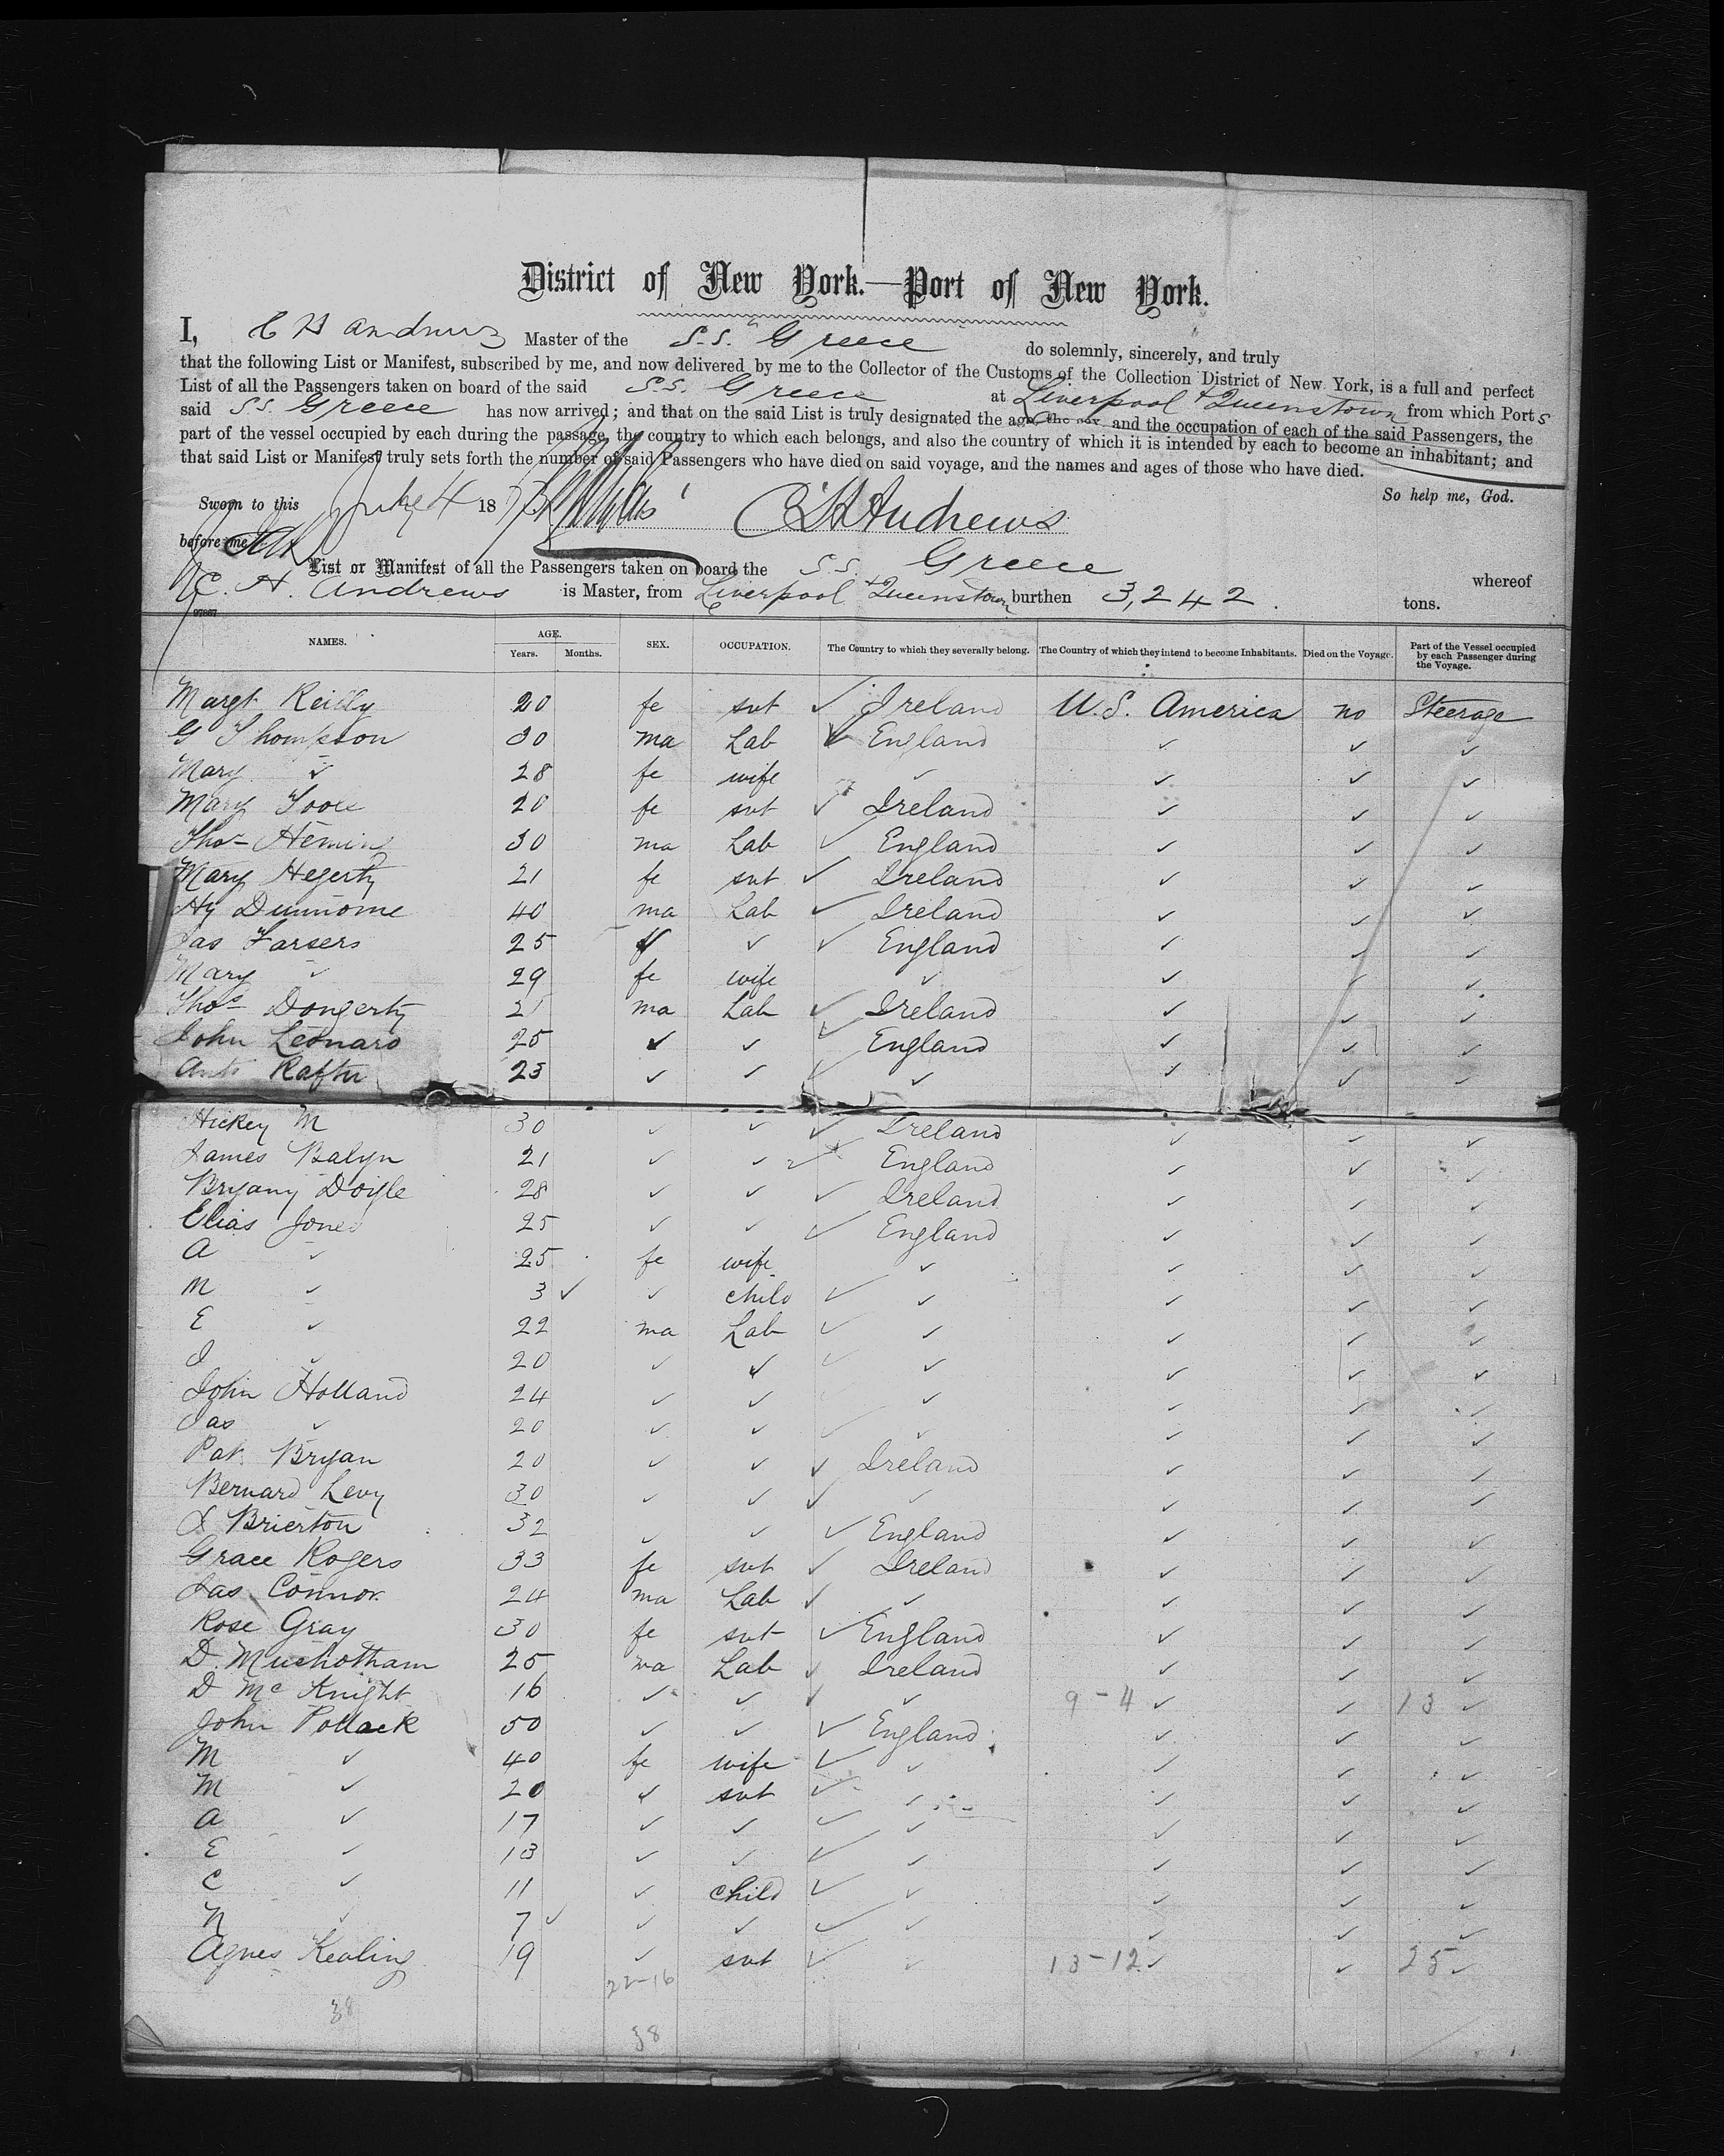 District of New York.—Port of New York.
I, C H Andrews Master of the S.S. Greece do solemnly, sincerely, and truly
that the following List or Manifest, subscribed by me, and now delivered by me to the Collector of the Customs of the Collection District of New York, is a full and perfect
List of all the Passengers taken on board of the said S.S. Greece at Liverpool & Queenstown from which Ports
said S.S. Greece has now arrived; and that on the said List is truly designated the age, the sex and the occupation of each of the said Passengers, the
part of the vessel occupied by each during the passage, the country to which each belongs, and also the country of which it is intended by each to become an inhabitant; and
that said List or Manifest truly sets forth the number of said Passengers who have died on said voyage, and the names and ages of those who have died.
So help me, God.
Sworn to this 4 1873 C H Andrews
before me
List or Manifest of all the Passengers taken on board the S.S. Greece whereof
C. H. Andrews is Master, from Liverpool & Queenstown burthen 3,242. tons.
97867
NAMES. AGE. Years. Months. SEX. OCCUPATION. The Country to which they severally belong. The Country of which they intend to become Inhabitants. Died on the Voyage. Part of the Vessel occupied by each Passenger during the Voyage.
Margt Reilly 20 fe svt ✓ Ireland U.S. America no Steerage
G Thompson 30 ma Lab ✓ England ✓ ✓ ✓
Mary ✓ 28 fe wife ✓ ✓ ✓ ✓
Mary 20 fe svt ✓ Ireland ✓ ✓ ✓
Thos Heming 30 ma Lab ✓ England ✓ ✓ ✓
Mary Hegerty 21 fe svt ✓ Ireland ✓ ✓ ✓
Hy 40 ma Lab ✓ Ireland ✓ ✓ ✓
Jas Farsers 25 ✓ ✓ ✓ England ✓ ✓ ✓
Mary ✓ 29 fe wife ✓ ✓ ✓ ✓
Thos Dongerty ma Lab ✓ Ireland ✓ ✓ ✓
John Leonard 25 ✓ ✓ ✓ England ✓ ✓ ✓
Anto 23 ✓ ✓ ✓ ✓ ✓ ✓ ✓
Hickey M 30 ✓ ✓ ✓ Ireland ✓ ✓ ✓
James Balyn 21 ✓ ✓ ✓ England ✓ ✓ ✓
Bryany Doyle 28 ✓ ✓ ✓ Ireland ✓ ✓ ✓
Elias Jones 25 ✓ ✓ ✓ England ✓ ✓ ✓
A ✓ 25 fe wife ✓ ✓ ✓ ✓
M ✓ 3 ✓ ✓ child ✓ ✓ ✓ ✓ ✓
E ✓ 22 ma Lab ✓ ✓ ✓ ✓ ✓
J ✓ 20 ✓ ✓ ✓ ✓ ✓ ✓ ✓
John Holland 24 ✓ ✓ ✓ ✓ ✓ ✓
Jas ✓ 20 ✓ ✓ ✓ ✓ ✓ ✓ ✓
Pat Bryan 20 ✓ ✓ ✓ Ireland ✓ ✓ ✓
Bernard Levy 30 ✓ ✓ ✓ ✓ ✓ ✓ ✓
Brierton 32 ✓ ✓ ✓ England ✓ ✓ ✓
Grace Rogers 33 fe svt ✓ Ireland ✓ ✓ ✓
Jas Connor 24 ma Lab ✓ ✓ ✓ ✓ ✓
Rose Gray 30 fe svt ✓ England ✓ ✓ ✓
D. Muchotham 25 ma Lab ✓ Ireland ✓ ✓ ✓
D McKnight 16 ✓ ✓ ✓ ✓ 9-4 ✓ ✓ 13 ✓
John Pollack 50 ✓ ✓ ✓ England ✓ ✓ ✓
M ✓ 40 fe wife ✓ ✓ ✓ ✓ ✓
M ✓ 20 ✓ svt ✓ ✓ ✓ ✓ ✓
A ✓ 17 ✓ ✓ ✓ ✓ ✓ ✓ ✓
E ✓ 13 ✓ ✓ ✓ ✓ ✓ ✓ ✓
C ✓ 11 ✓ child ✓ ✓ ✓ ✓ ✓
N ✓ 7 ✓ ✓ ✓ ✓ ✓ ✓ ✓ ✓
Agnes Kealing 19 ✓ svt ✓ ✓ 13-12 ✓ ✓ 25 ✓
22-16
38
38